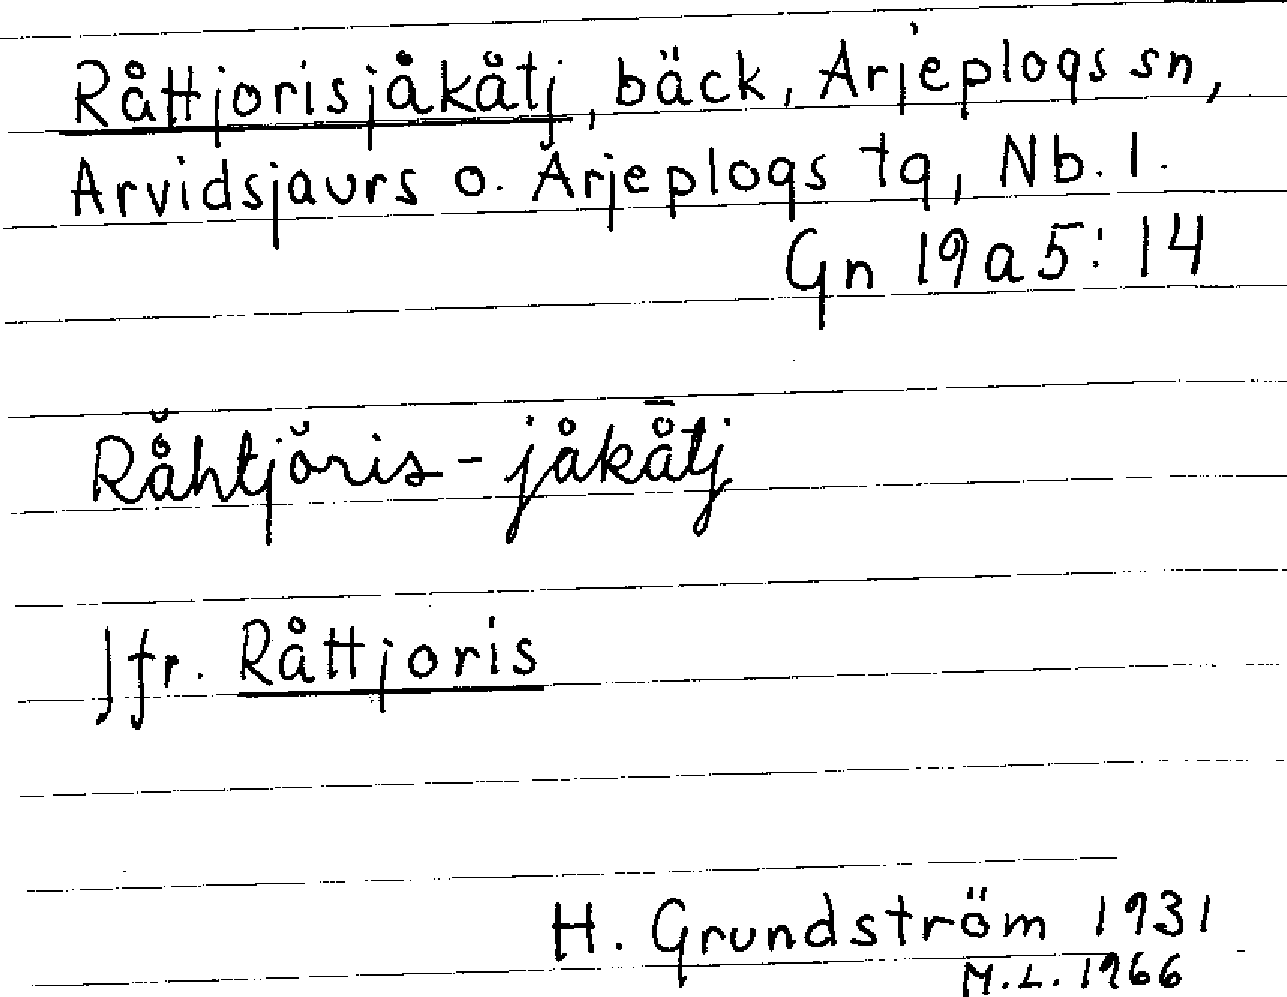 Råttjorisjåkåtj, bäck, Arjeplogs sn,
Arvidsjaurs o. Arjeplogs tg, Nb. l.
Gn 19a5:14
Rå̆htjŏris-jåkå̄tj
Jfr. Råttjoris
H. Grundström 1931
M.L. 1966